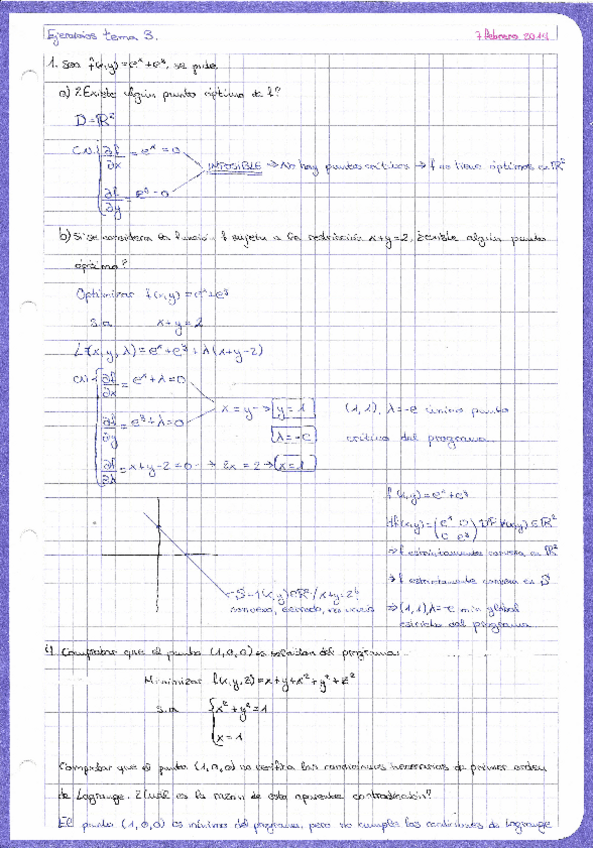 Ejercicios tema 3.
7 febrero 2014
1. Sea f(x,y)=e^x+e^y, se pide
a) ¿Existe algún punto óptimo de f?
D=ℝ²
CN { ∂f/∂x = e^x = 0
IMPOSIBLE → No hay puntos críticos → f no tiene óptimos en ℝ²
∂f/∂y = e^y = 0
b) Si se considera la función f sujeta a la restricción x+y=2, ¿existe algún punto
óptimo?
Optimizar f(x,y)=e^x+e^y
s.a x+y=2
L(x,y,λ)=e^x+e^y+λ(x+y-2)
CN { ∂f/∂x = e^x+λ=0
x=y → y=1 (1,1), λ=-e único punto
∂f/∂y = e^y+λ=0
λ=-e crítico del programa.
∂f/∂λ = x+y-2=0 → 2x=2 → x=1
f(x,y)=e^x+e^y
Hf(x,y)=(e^x 0 / 0 e^y) DP ∀(x,y)∈ℝ²
⇒ f estrictamente convexa en ℝ²
⇒ f estrictamente convexa en S
S={(x,y)∈ℝ²/x+y=2}
convexo, cerrado, no vacío
⇒ (1,1), λ=-e min global
estricto del programa
Comprobar que el punto (1,0,0) es solución del programa:
Minimizar f(x,y,z)=x+y+x²+y²+z²
s.a { x²+y²=1
x=1
Comprobar que el punto (1,0,0) no verifica las condiciones necesarias de primer orden
de Lagrange. ¿Cuál es la razón de esta aparente contradicción?
El punto (1,0,0) es mínimo del programa, pero no cumple las condiciones de Lagrange